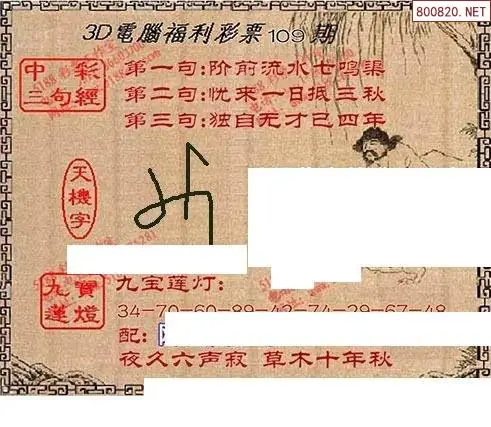 800820.NET
3D電腦福利彩票109期
中彩
三句經
第一句:阶前流水七鸣渠
第二句:忧来一日抵三秋
第三句:独自无才己四年
天機字
九寶
蓮燈
九宝莲灯:
34-70-60-89-42-74-29-67-48
配:
夜久六声寂 草木十年秋